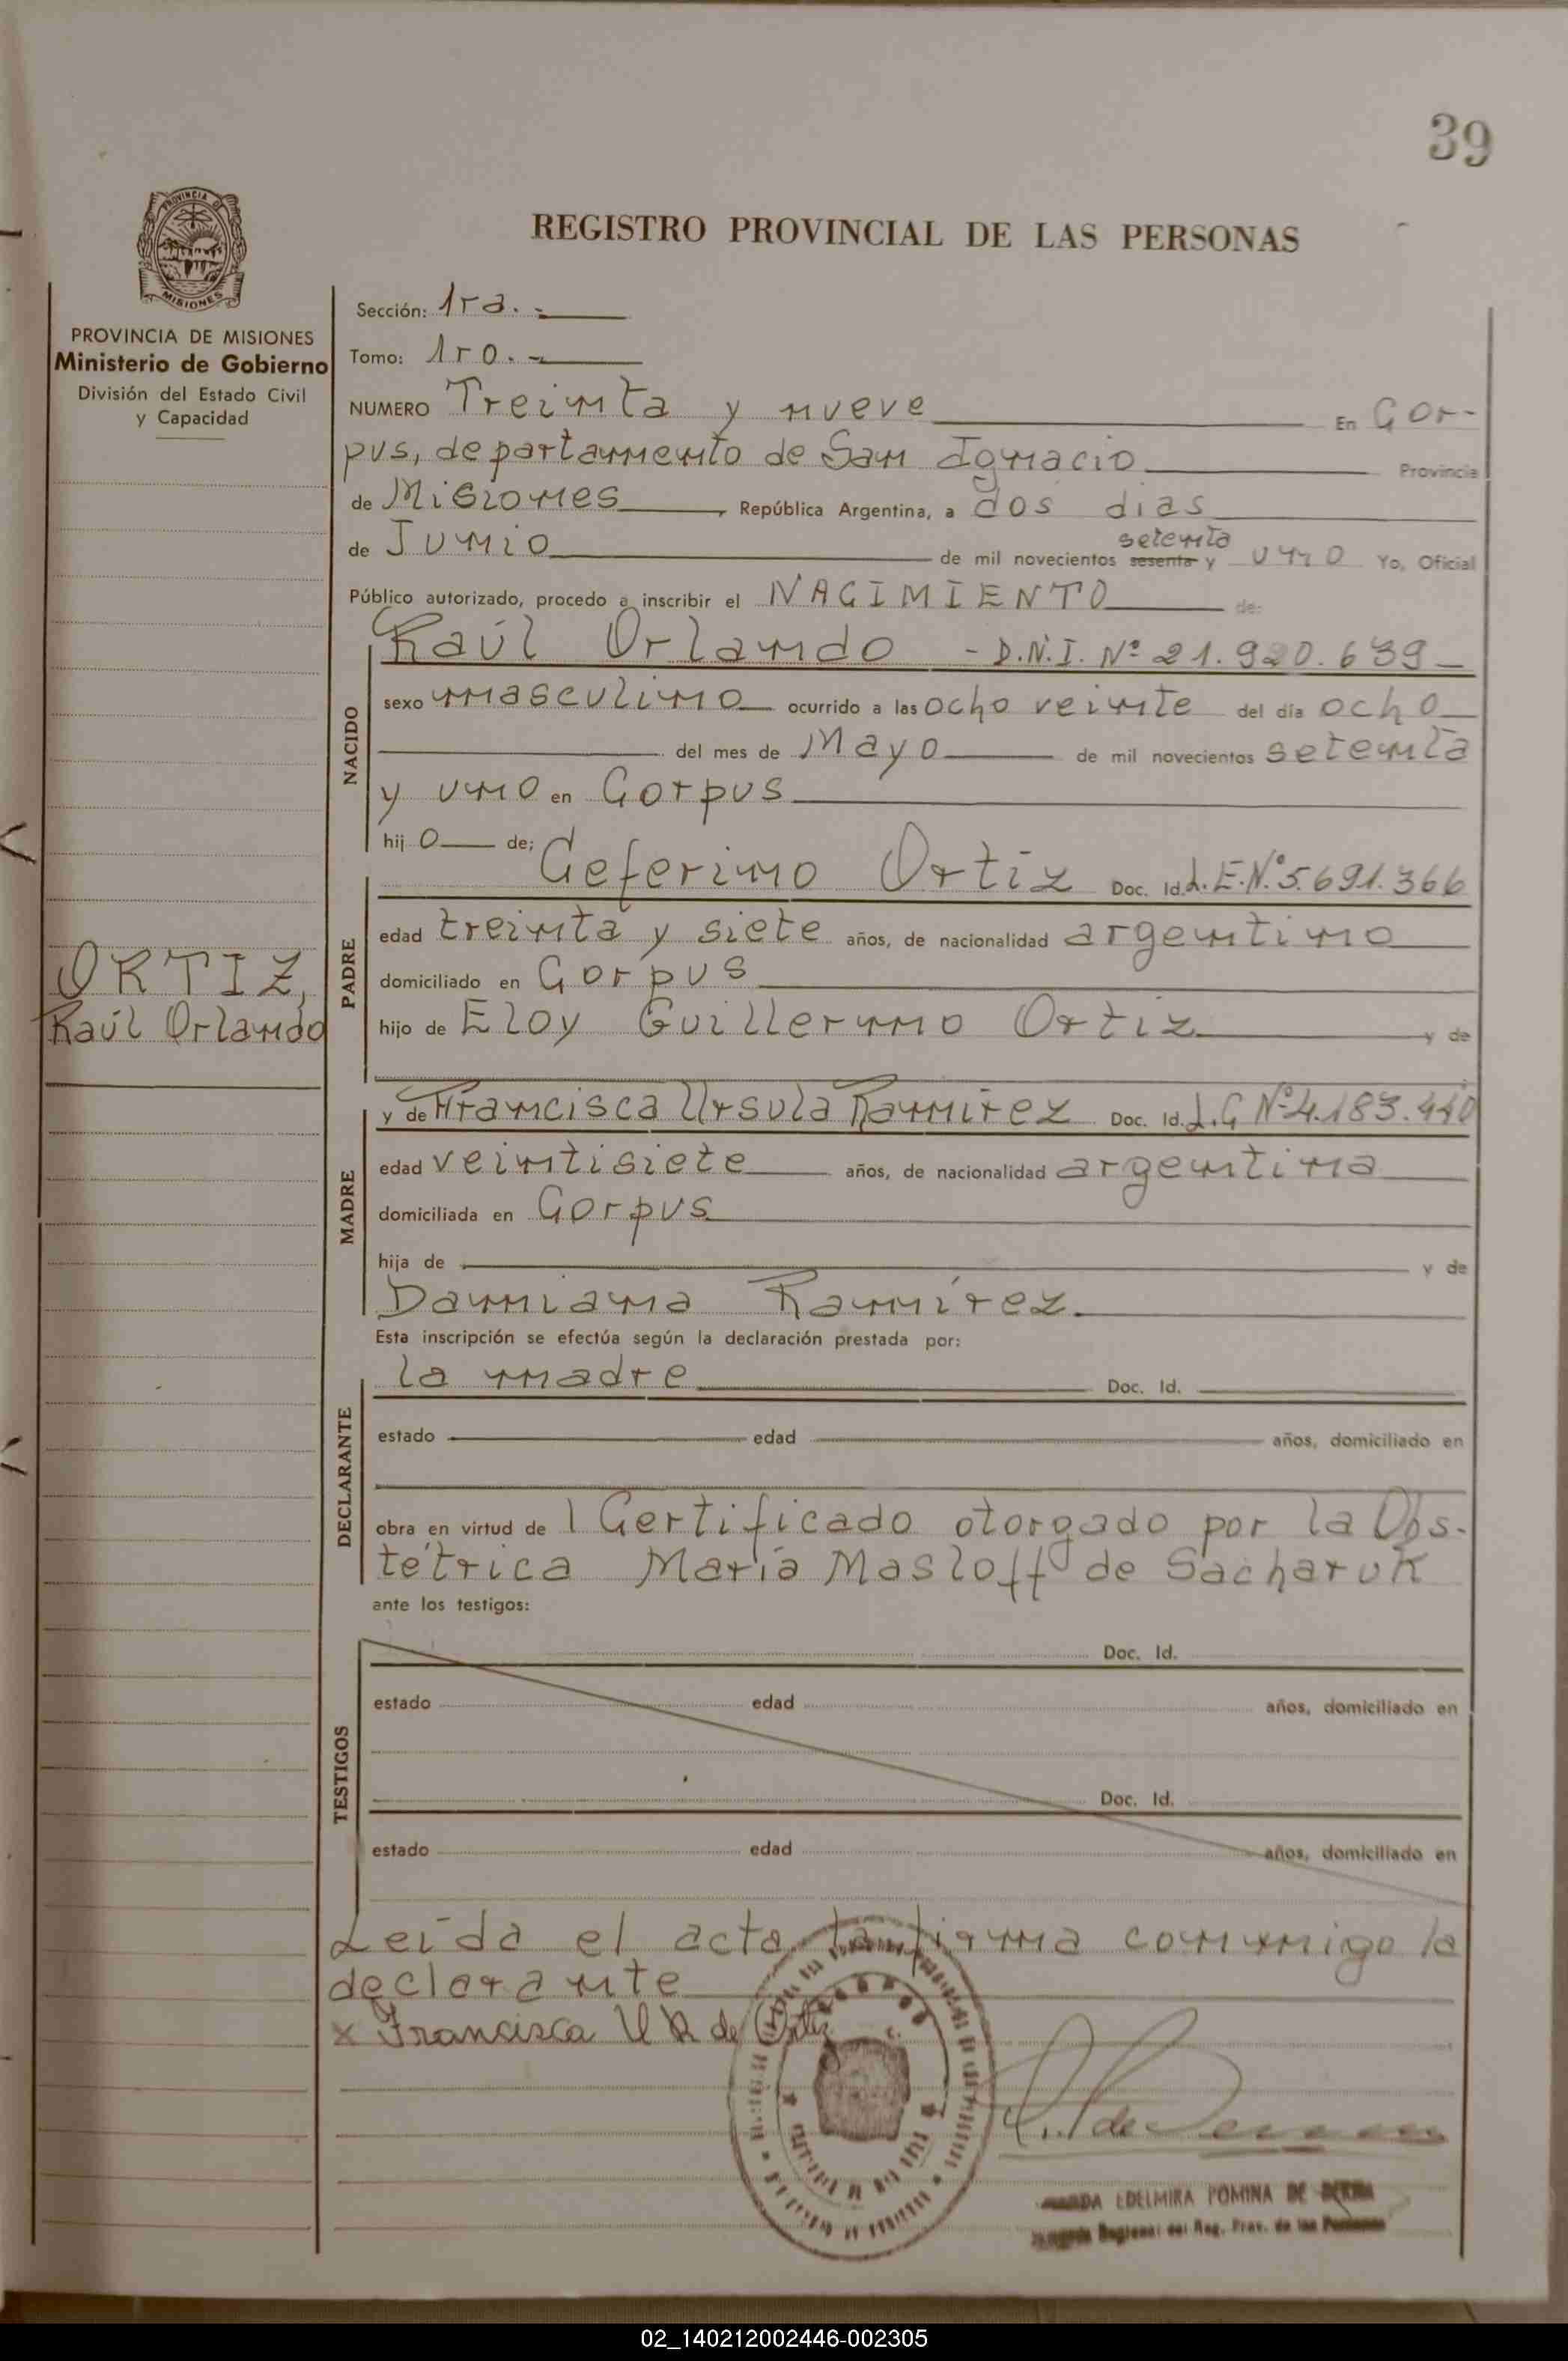 39
REGISTRO PROVINCIAL DE LAS PERSONAS
PROVINCIA DE
MISIONES
PROVINCIA DE MISIONES
Ministerio de Gobierno
División del Estado Civil
y Capacidad
Sección: 1ra.-
Tomo: 1ro.-
NUMERO Treinta y nueve En Cor-
pus, departamento de San Ignacio Provincia
de Misiones, República Argentina, a dos dias
setenta
de Junio de mil novecientos sesenta y uno Yo, Oficial
Público autorizado, procedo a inscribir el NACIMIENTO de:
Raúl Orlando - D.N.I. Nº 21.920.639-
NACIDO
sexo masculino ocurrido a las ocho veinte del día ocho
del mes de Mayo de mil novecientos setenta
y uno en Corpus
hijo de;
Ceferino Ortiz Doc. Id. L.E.Nº 5.691.366
PADRE
edad treinta y siete años, de nacionalidad argentino
domiciliado en Corpus
hijo de Eloy Guillermo Ortiz y de
ORTIZ,
Raúl Orlando
y de Francisca Ursula Ramírez Doc. Id. L.C Nº 4.183.440
MADRE
edad veintisiete años, de nacionalidad argentina
domiciliada en Corpus
hija de y de
Damiana Ramírez
Esta inscripción se efectúa según la declaración prestada por:
la madre Doc. Id.
DECLARANTE
estado edad años, domiciliado en
obra en virtud de 1 Certificado otorgado por la Obs-
tétrica María Masloff de Sacharuk
ante los testigos:
TESTIGOS
Doc. Id.
estado edad años, domiciliado en
Doc. Id.
estado edad años, domiciliado en
Leída el acta la firma conmigo la
declarante
x Francisca U R de Ortiz
EDELMIRA ROMINA DE
Regional del Reg. Prov. de las Personas
02_140212002446-002305